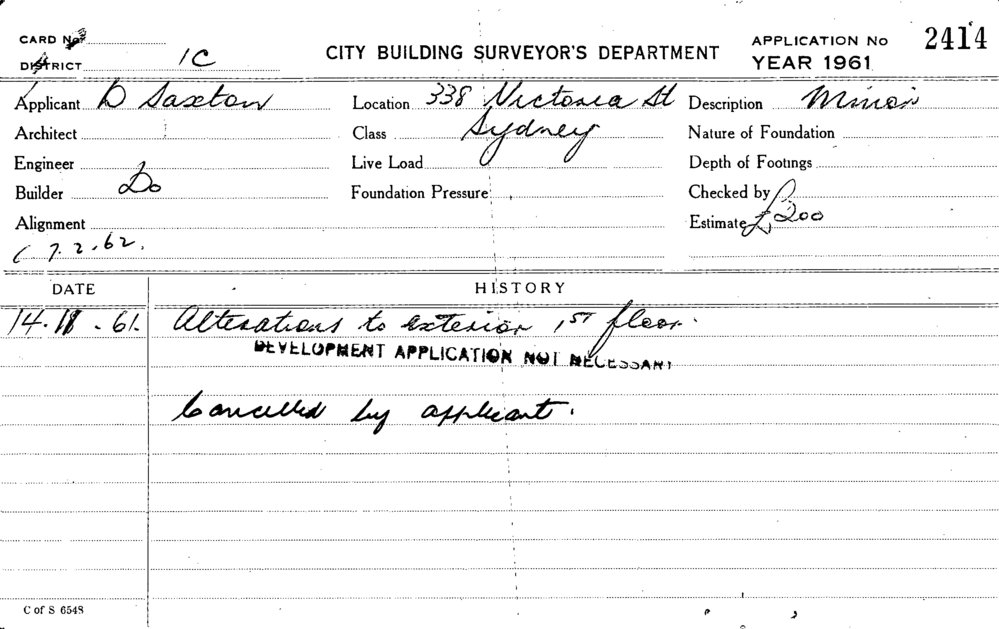 CARD No.
DISTRICT 1C
CITY BUILDING SURVEYOR'S DEPARTMENT
APPLICATION No 2414
YEAR 1961
Applicant D Saxton
Location 338 Victoria St
Description Minor
Architect
Class Sydney
Nature of Foundation
Engineer
Live Load
Depth of Footings
Builder Do
Foundation Pressure
Checked by
Alignment
Estimate £200
7.2.62.
DATE
HISTORY
14. -61. Alterations to exterior 1ST floor.
DEVELOPMENT APPLICATION NOT NECESSARY
Cancelled by applicant.
C of S 6548